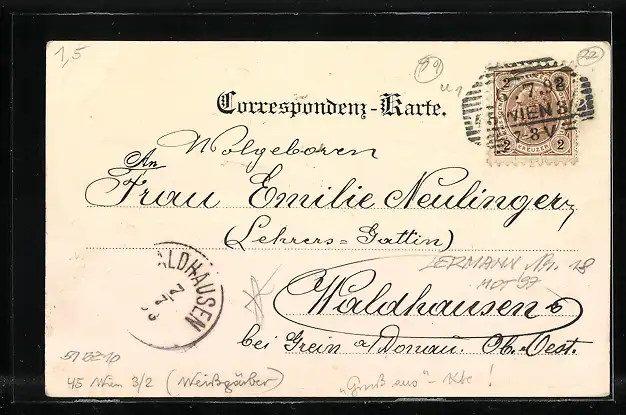 1,5
99
22
2 2
7.9 8
WIEN 3/2
7-8·V
2 KREUZER 2
Correspondenz-Karte.
Wolgeboren
An
Frau Emilie Neulinger,
(Lehrers=Gattin)
WALDHAUSEN
LERMANN Nr. 18
MOT 97
Waldhausen
bei Grein a/Donau. Ob.-Oest.
45 Wien 3/2 (Weißgärber)
"Gruß aus"-Kte!